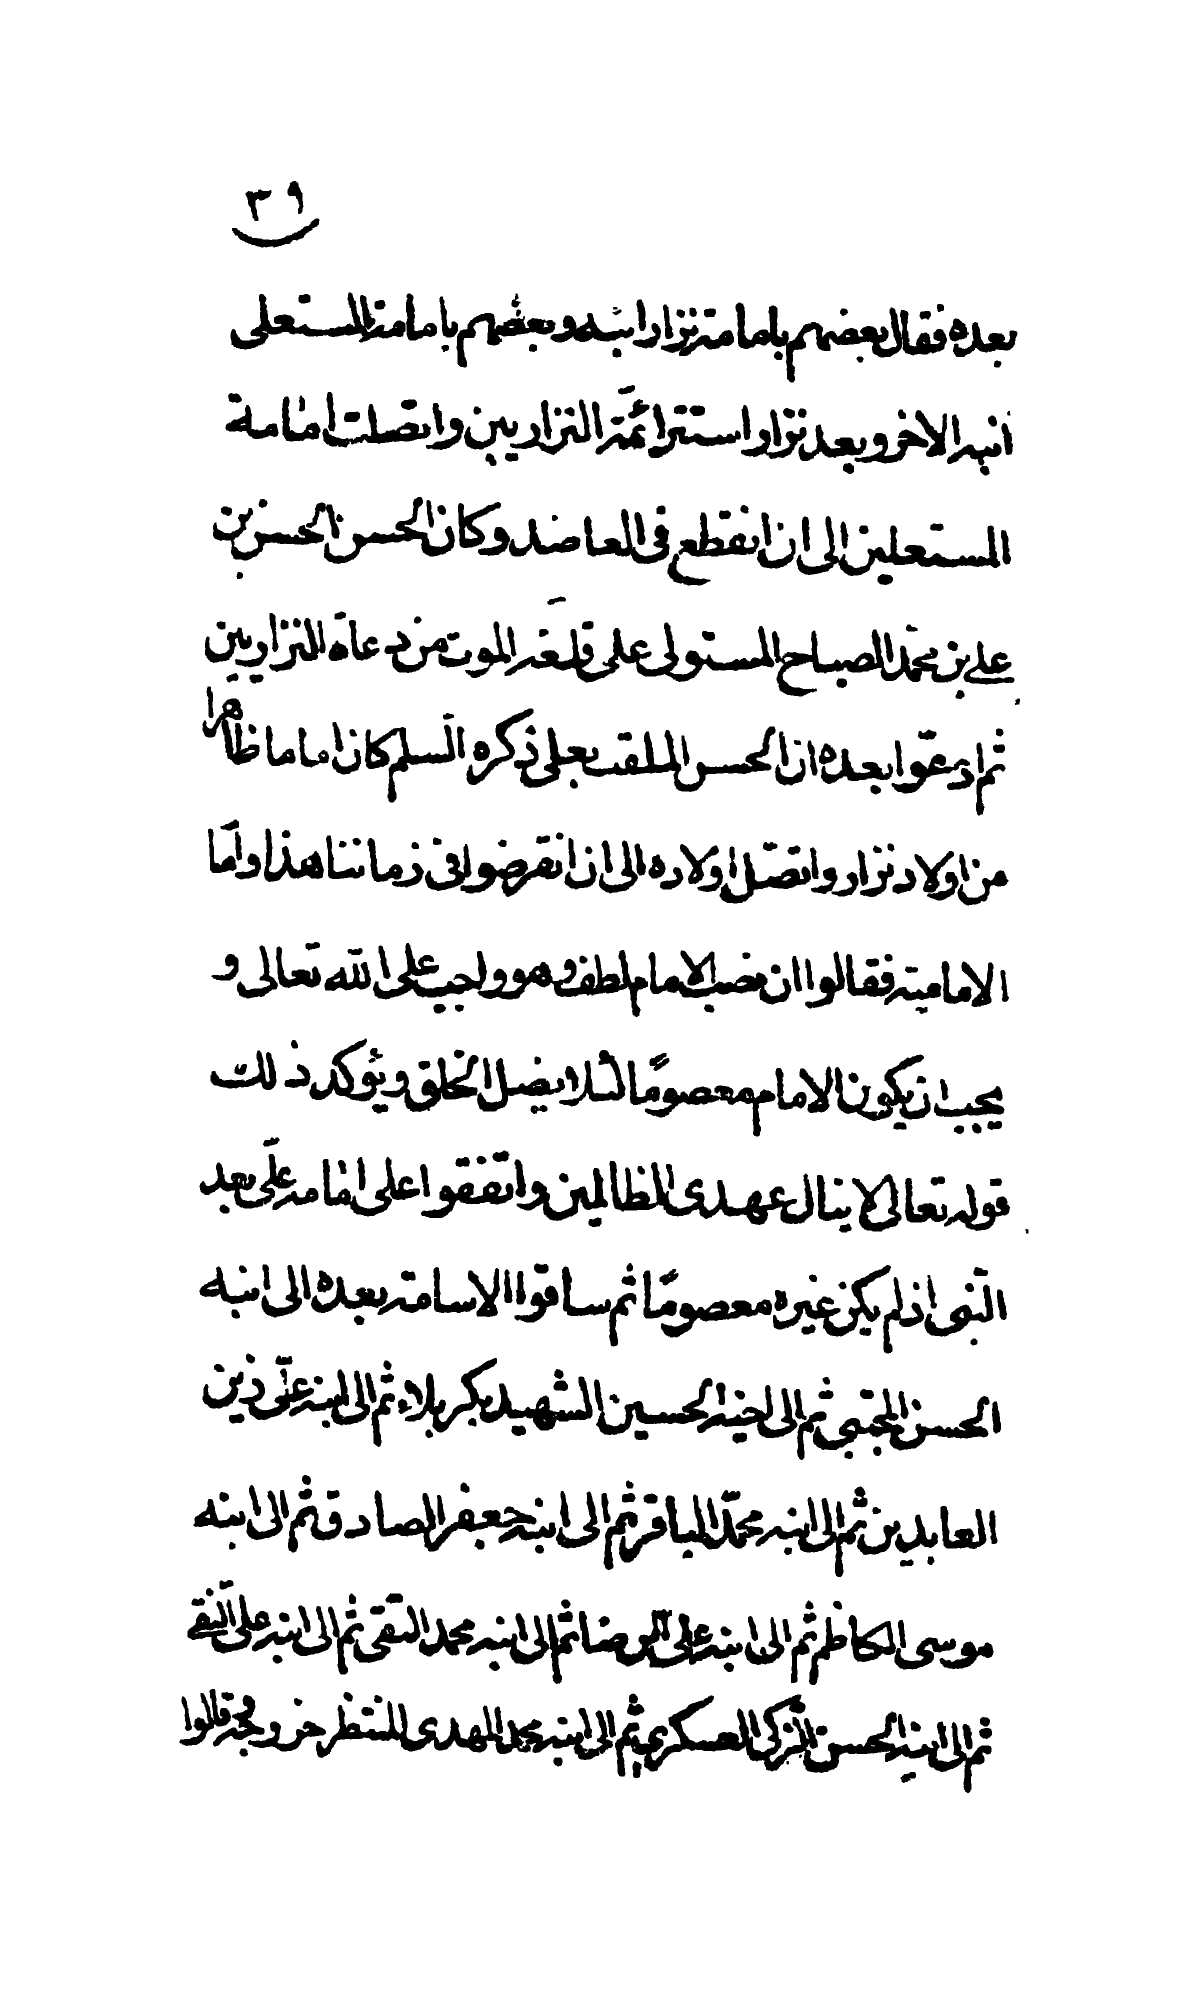 ٣٩
بعده فقال بعضهم بامامة نزار ابنه وبعضهم بامامة المستعلى
ابنه الاخر وبعد نزار استتر ائمّة النزاريين واتصلت امامة
المستعلين الى ان انقطع فى العاضد وكان الحسن الحسن بن
على بن محمّد الصباح المستولى على قلعة الموت من دعاة النزاريين
ثم ادعوّا بعده ان الحسن الملقب بعلى ذكره السلم كان اماما ظاهرا
من اولاد نزار واتصل اولاده الى ان انقرضوا فى زماننا هذا وامّا
الاماميّة فقالوا ان نصب الامام لطف وهو واجب على الله تعالى و
يجب ان يكون الامام معصومًا لئلا يضل الخلق ويؤكد ذلك
قوله تعالى لا ينال عهدى الظالمين واتفقوا على امامه علّى بعد
النّبى اذ لم يكن غيره معصومًا ثم ساقوا الاسامة بعده الى ابنه
الحسن المجتبى ثم الى اخيه الحسين الشهيد بكربلاء ثم الى ابنه علّى زين
العابدين ثم الى ابنه محمّد الباقر ثم الى ابنه جعفر الصادق ثم الى ابنه
موسى الكاظم ثم الى ابنه على الرضا ثم الى ابنه محمد التقى ثم الى ابنه على النّقى
ثم الى ابنه الحسن الزّكى العسكرى ثم الى ابنه محمد المهدى المنتظر خروجه وقالوا